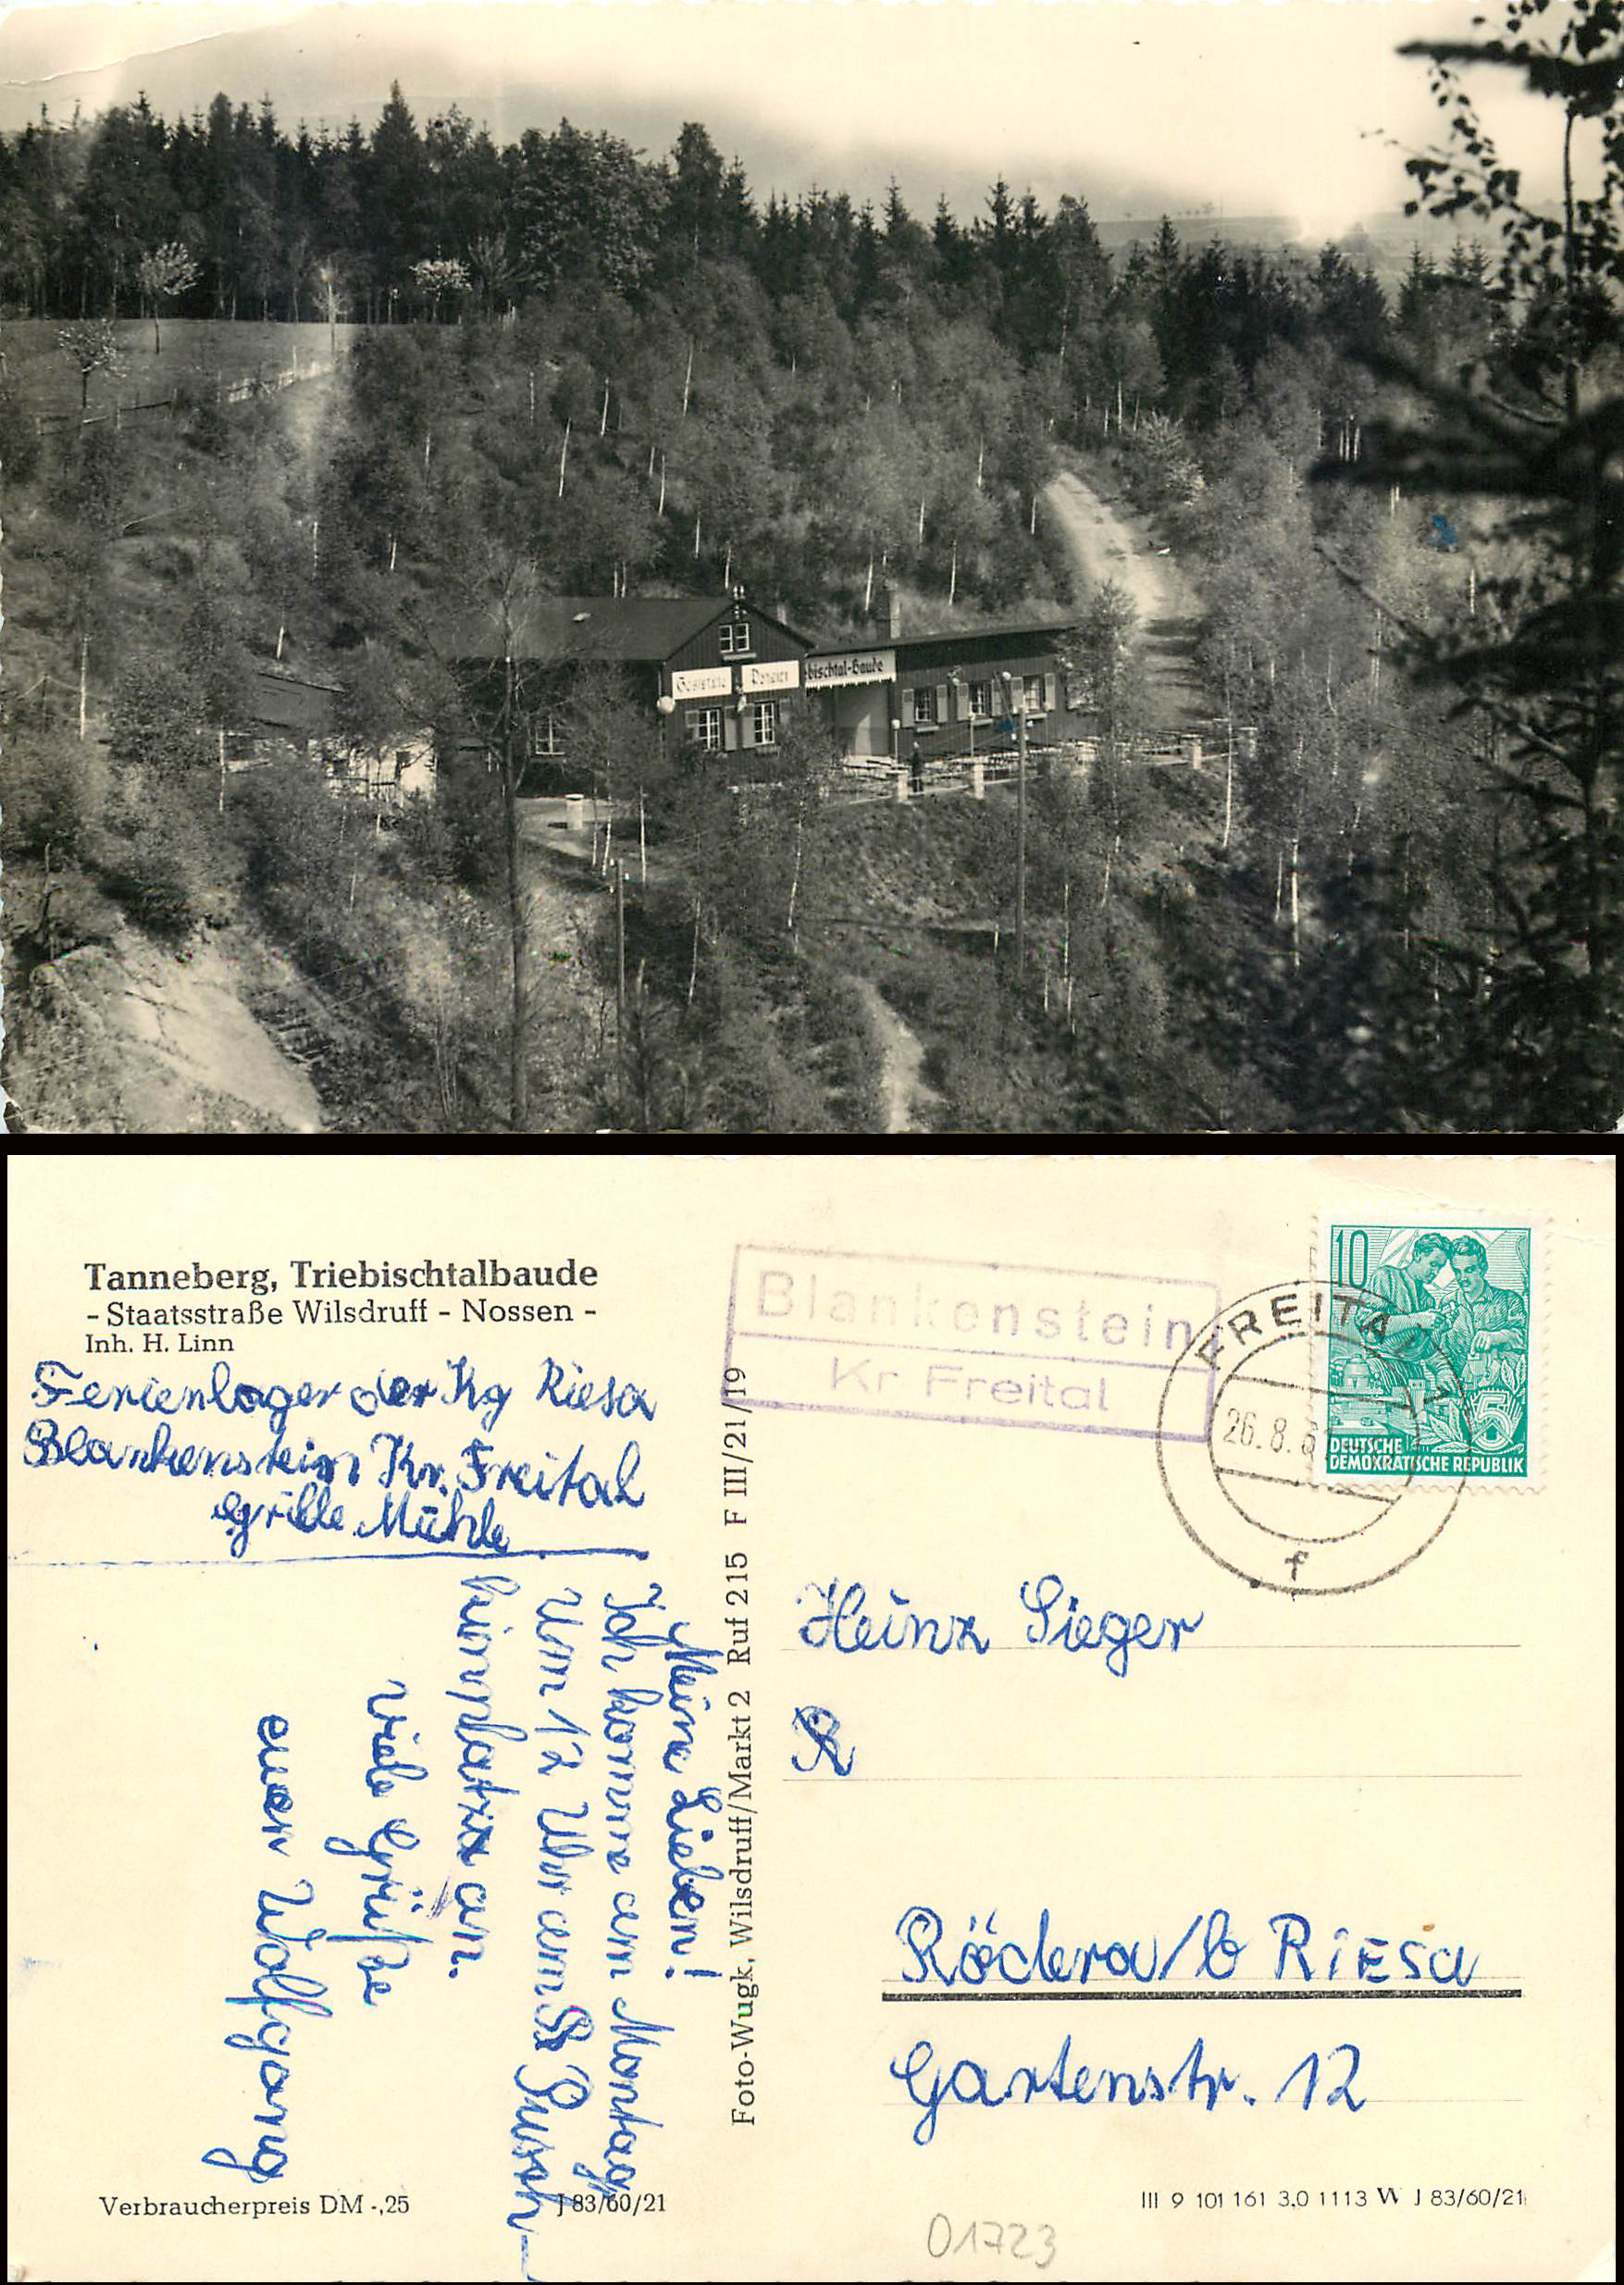 Gaststätte
bischtal-Baude
Tanneberg, Triebischtalbaude
- Staatsstraße Wilsdruff - Nossen -
Inh. H. Linn
Ferienlager der Kg Riesa
Blankenstein Kr. Freital
Grille Mühle
Meine Lieben!
Ich komme am Montag
Um 12 Uhr am
an.
Viele Grüße
euer Wolfgang
Verbraucherpreis DM -,25
J 83/60/21
Foto-Wugk, Wilsdruff/Markt 2 Ruf 215 F III/21/19
Blankenstein
Kr Freital
FREITAL 1
26.8.
f
10
5
DEUTSCHE
DEMOKRATISCHE REPUBLIK
Heinz Sieger
Röderau/b RIESA
Gartenstr. 12
III 9 101 161 3,0 1113 W J 83/60/21
01723